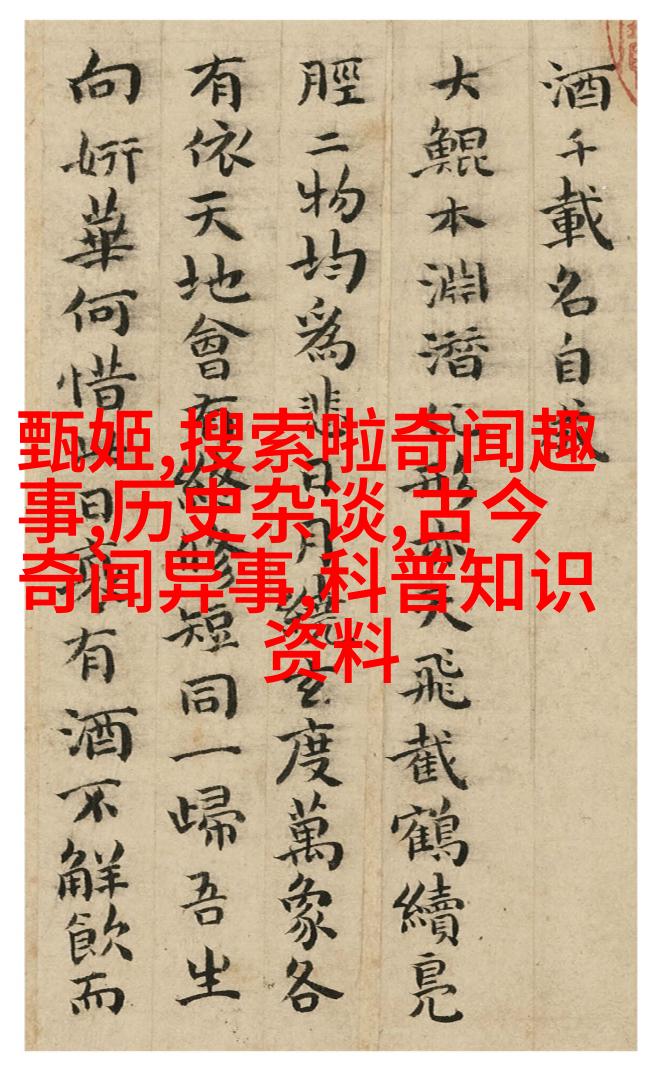 酒千載名自
大鯤本淵潛化形亦天飛截鶴續鳧
脛二物均為悲日月繞玄度萬象各
有依天地會有終修短同一歸吾生
向妍華何惜此日有酒不觧飲而
甄姬,搜索啦奇闻趣
事,历史杂谈,古今
奇闻异事,科普知识
资料